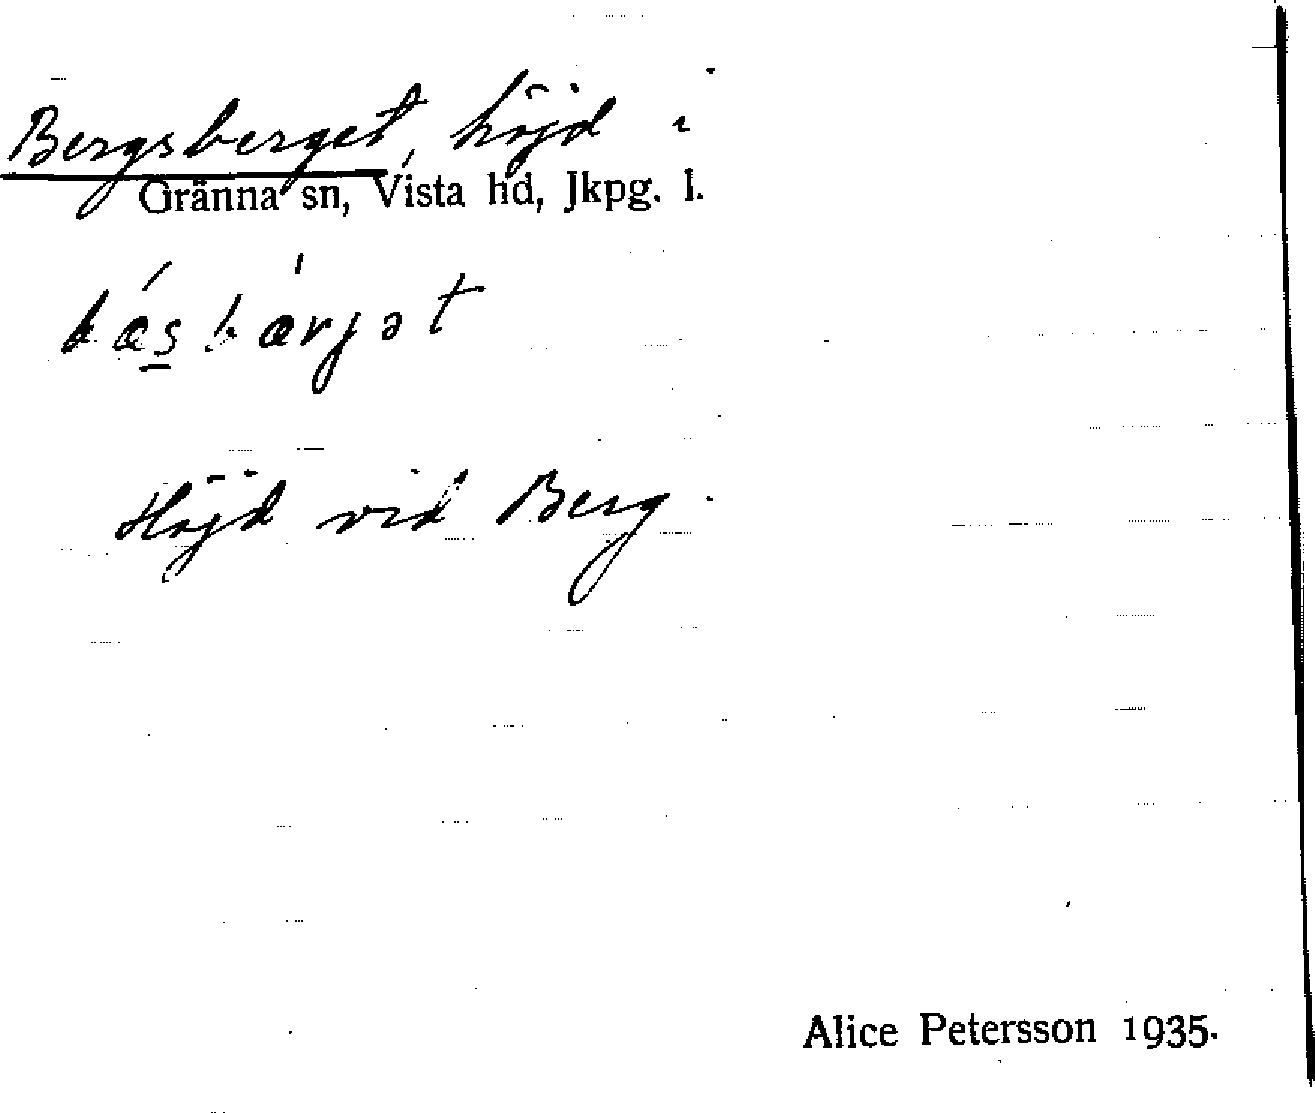 Bergsberget, höjd i
Gränna sn, Vista hd, Jkpg. l.
bæ̀sbærjət
Höjd vid Berg.
Alice Petersson 1935.